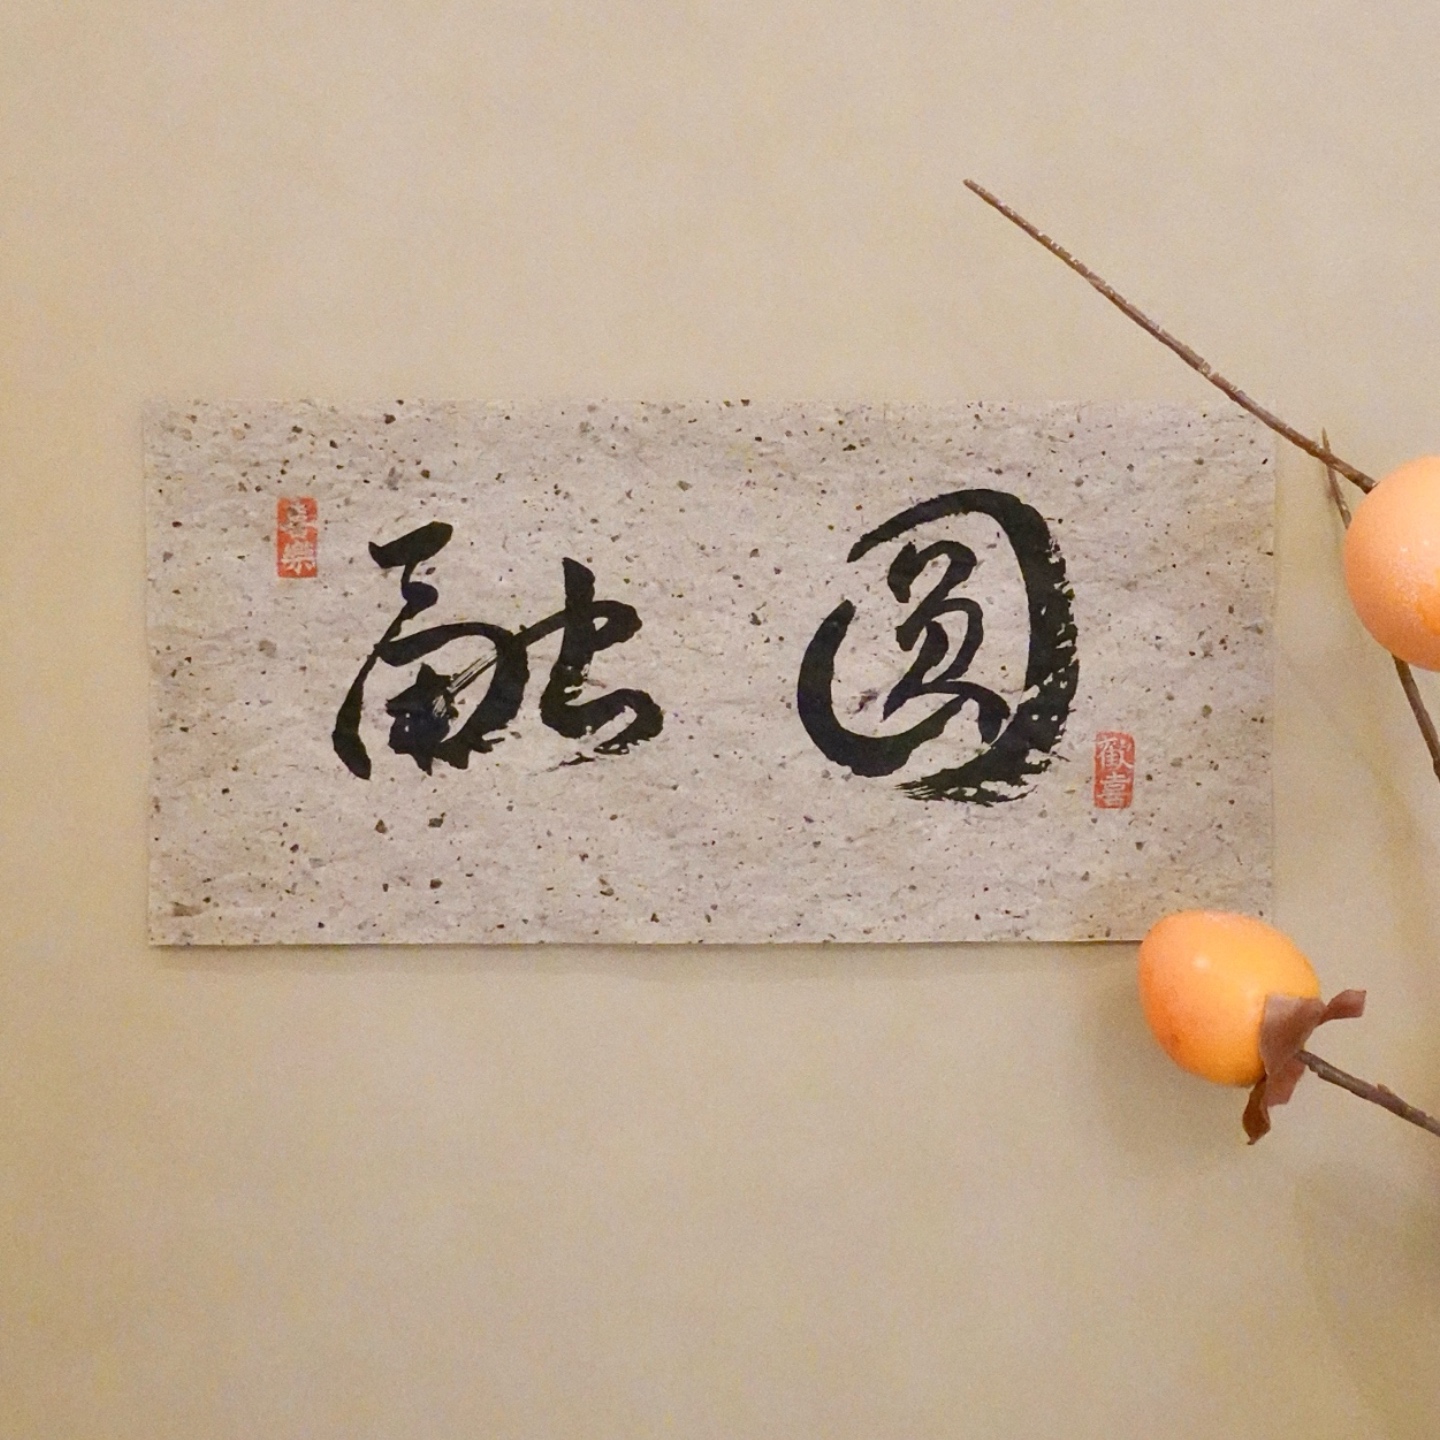 圓融
歡喜
喜樂